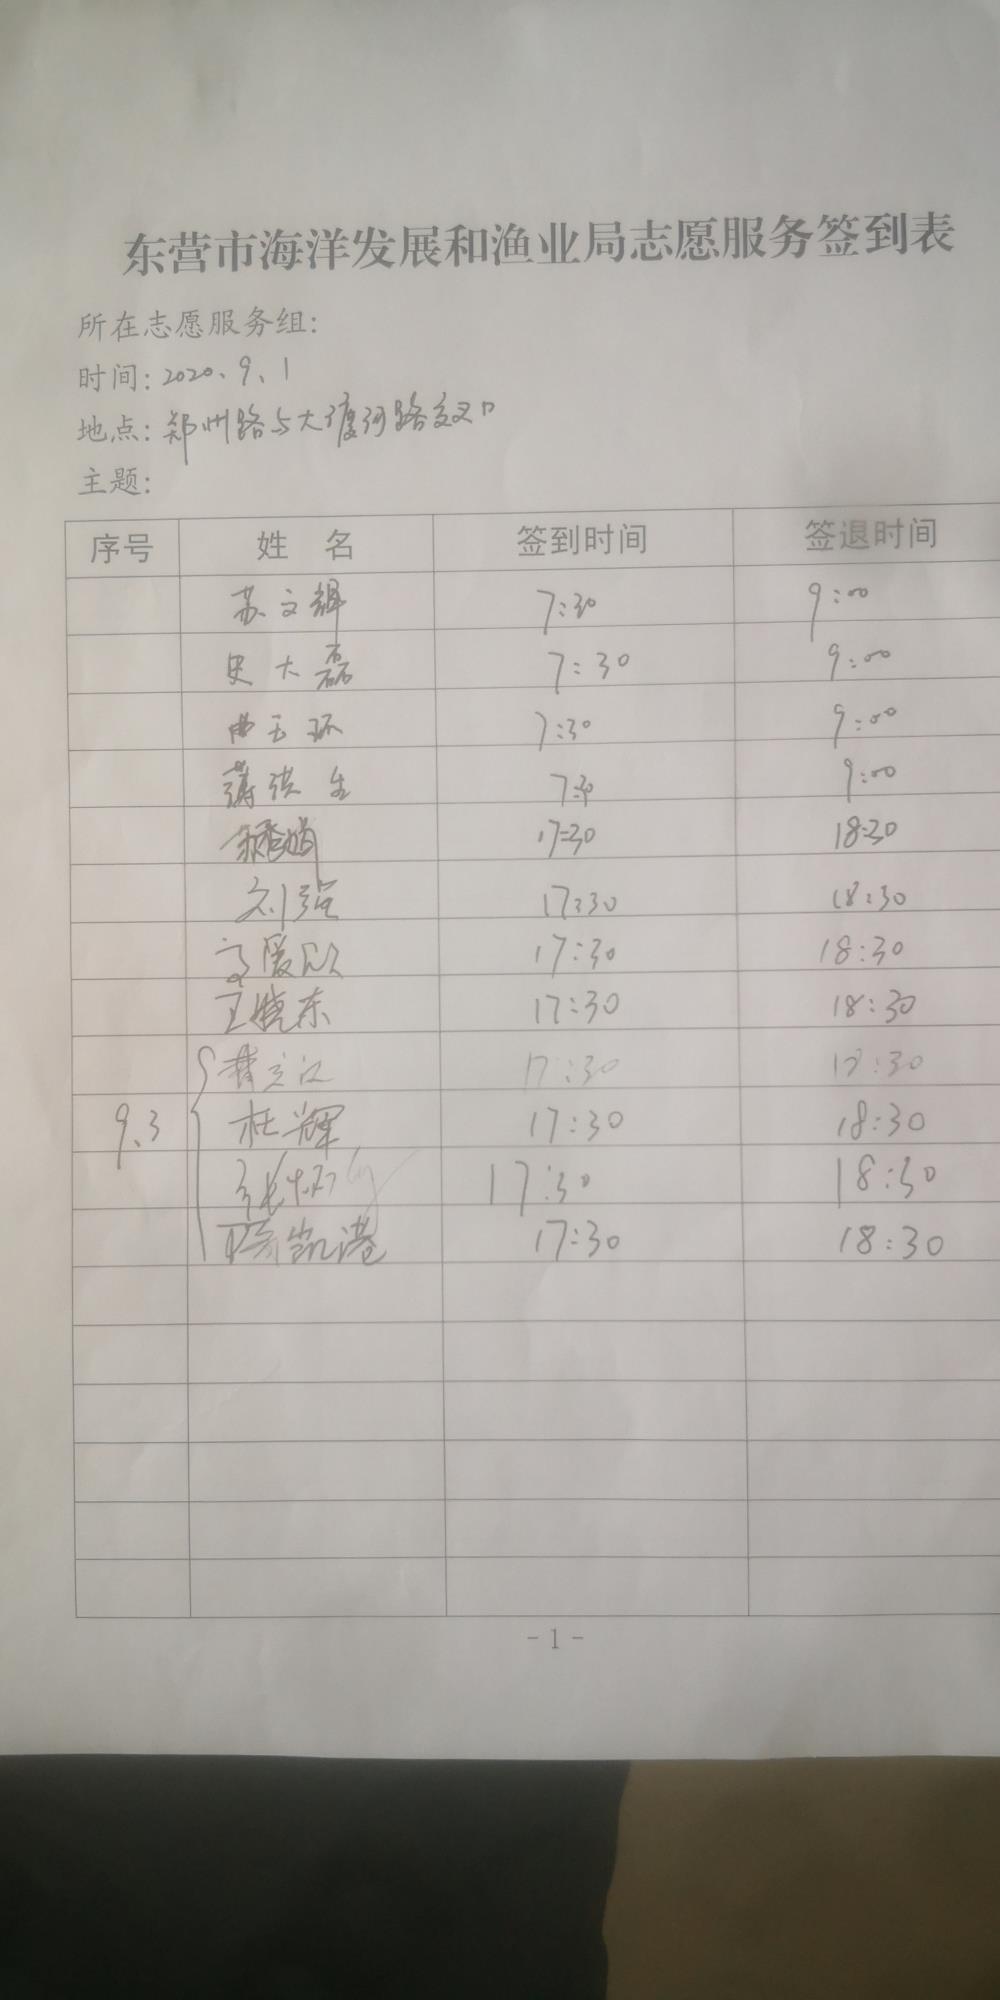 东营市海洋发展和渔业局志愿服务签到表
所在志愿服务组:
时间: 2020.9.1
地点: 郑州路与大渡河路交叉口
主题:
序号 姓 名 签到时间 签退时间
苏文辉 7:30 9:00
史大磊 7:30 9:00
曲玉环 7:30 9:00
薄洪生 7:30 9:00
17:30 18:30
刘强 17:30 18:30
高爱欣 17:30 18:30
王晓东 17:30 18:30
17:30 18:30
9.3 杜辉 17:30 18:30
张 17:30 18:30
陈凯港 17:30 18:30
-1-